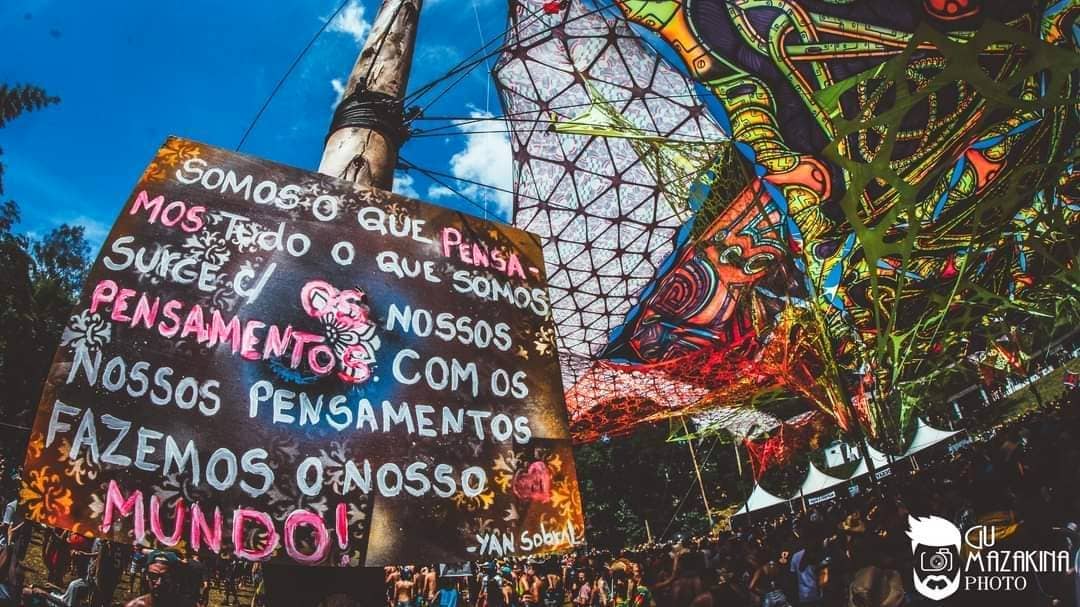 SOMOS O QUE PENSA-
MOS TUDO O QUE SOMOS
SURGE C/ OS NOSSOS
PENSAMENTOS. COM OS
NOSSOS PENSAMENTOS
FAZEMOS O NOSSO
MUNDO!
-YAN SOBRAL
GU
MAZAKINA
PHOTO